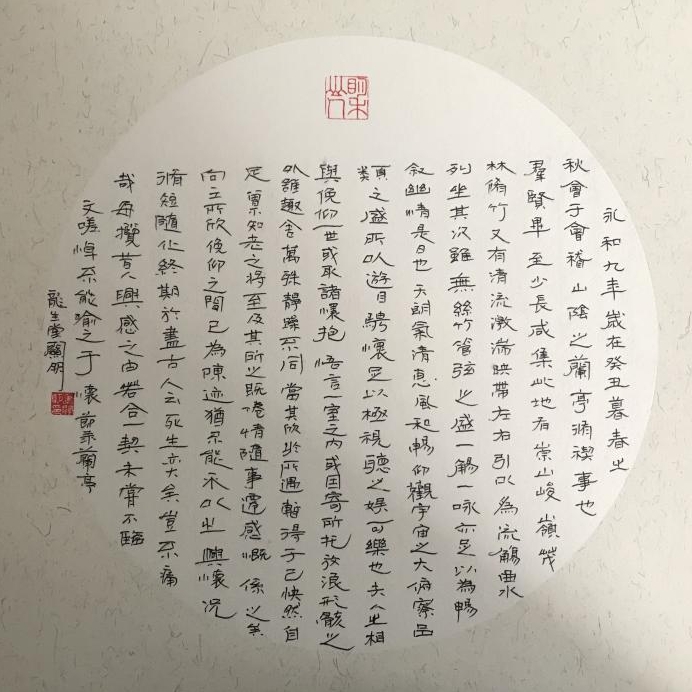 永和九年歲在癸丑暮春之
秋會于會稽山陰之蘭亭脩禊事也
羣賢畢至少長咸集此地有崇山峻嶺茂
林脩竹又有清流激湍映帶左右引以為流觴曲水
列坐其次雖無絲竹管弦之盛一觴一詠亦足以為暢
敘幽情是日也天朗氣清惠風和暢仰觀宇宙之大俯察品
類之盛所以遊目騁懷足以極視聽之娛可樂也夫人之相
與俛仰一世或取諸懷抱悟言一室之內或因寄所托放浪形骸之
外雖趣舍萬殊靜躁不同當其欣於所遇暫得于己快然自
足知老之将至及其所之既倦情隨事遷感慨係之矣
向之所欣俛仰之間已為陳迹猶不能不以之興懷況
脩短隨化終期於盡古人云死生亦大矣豈不痛
哉每攬昔人興感之由若合一契未嘗不臨
文嗟悼不能喻之于懷節录蘭亭
龍生堂顯明